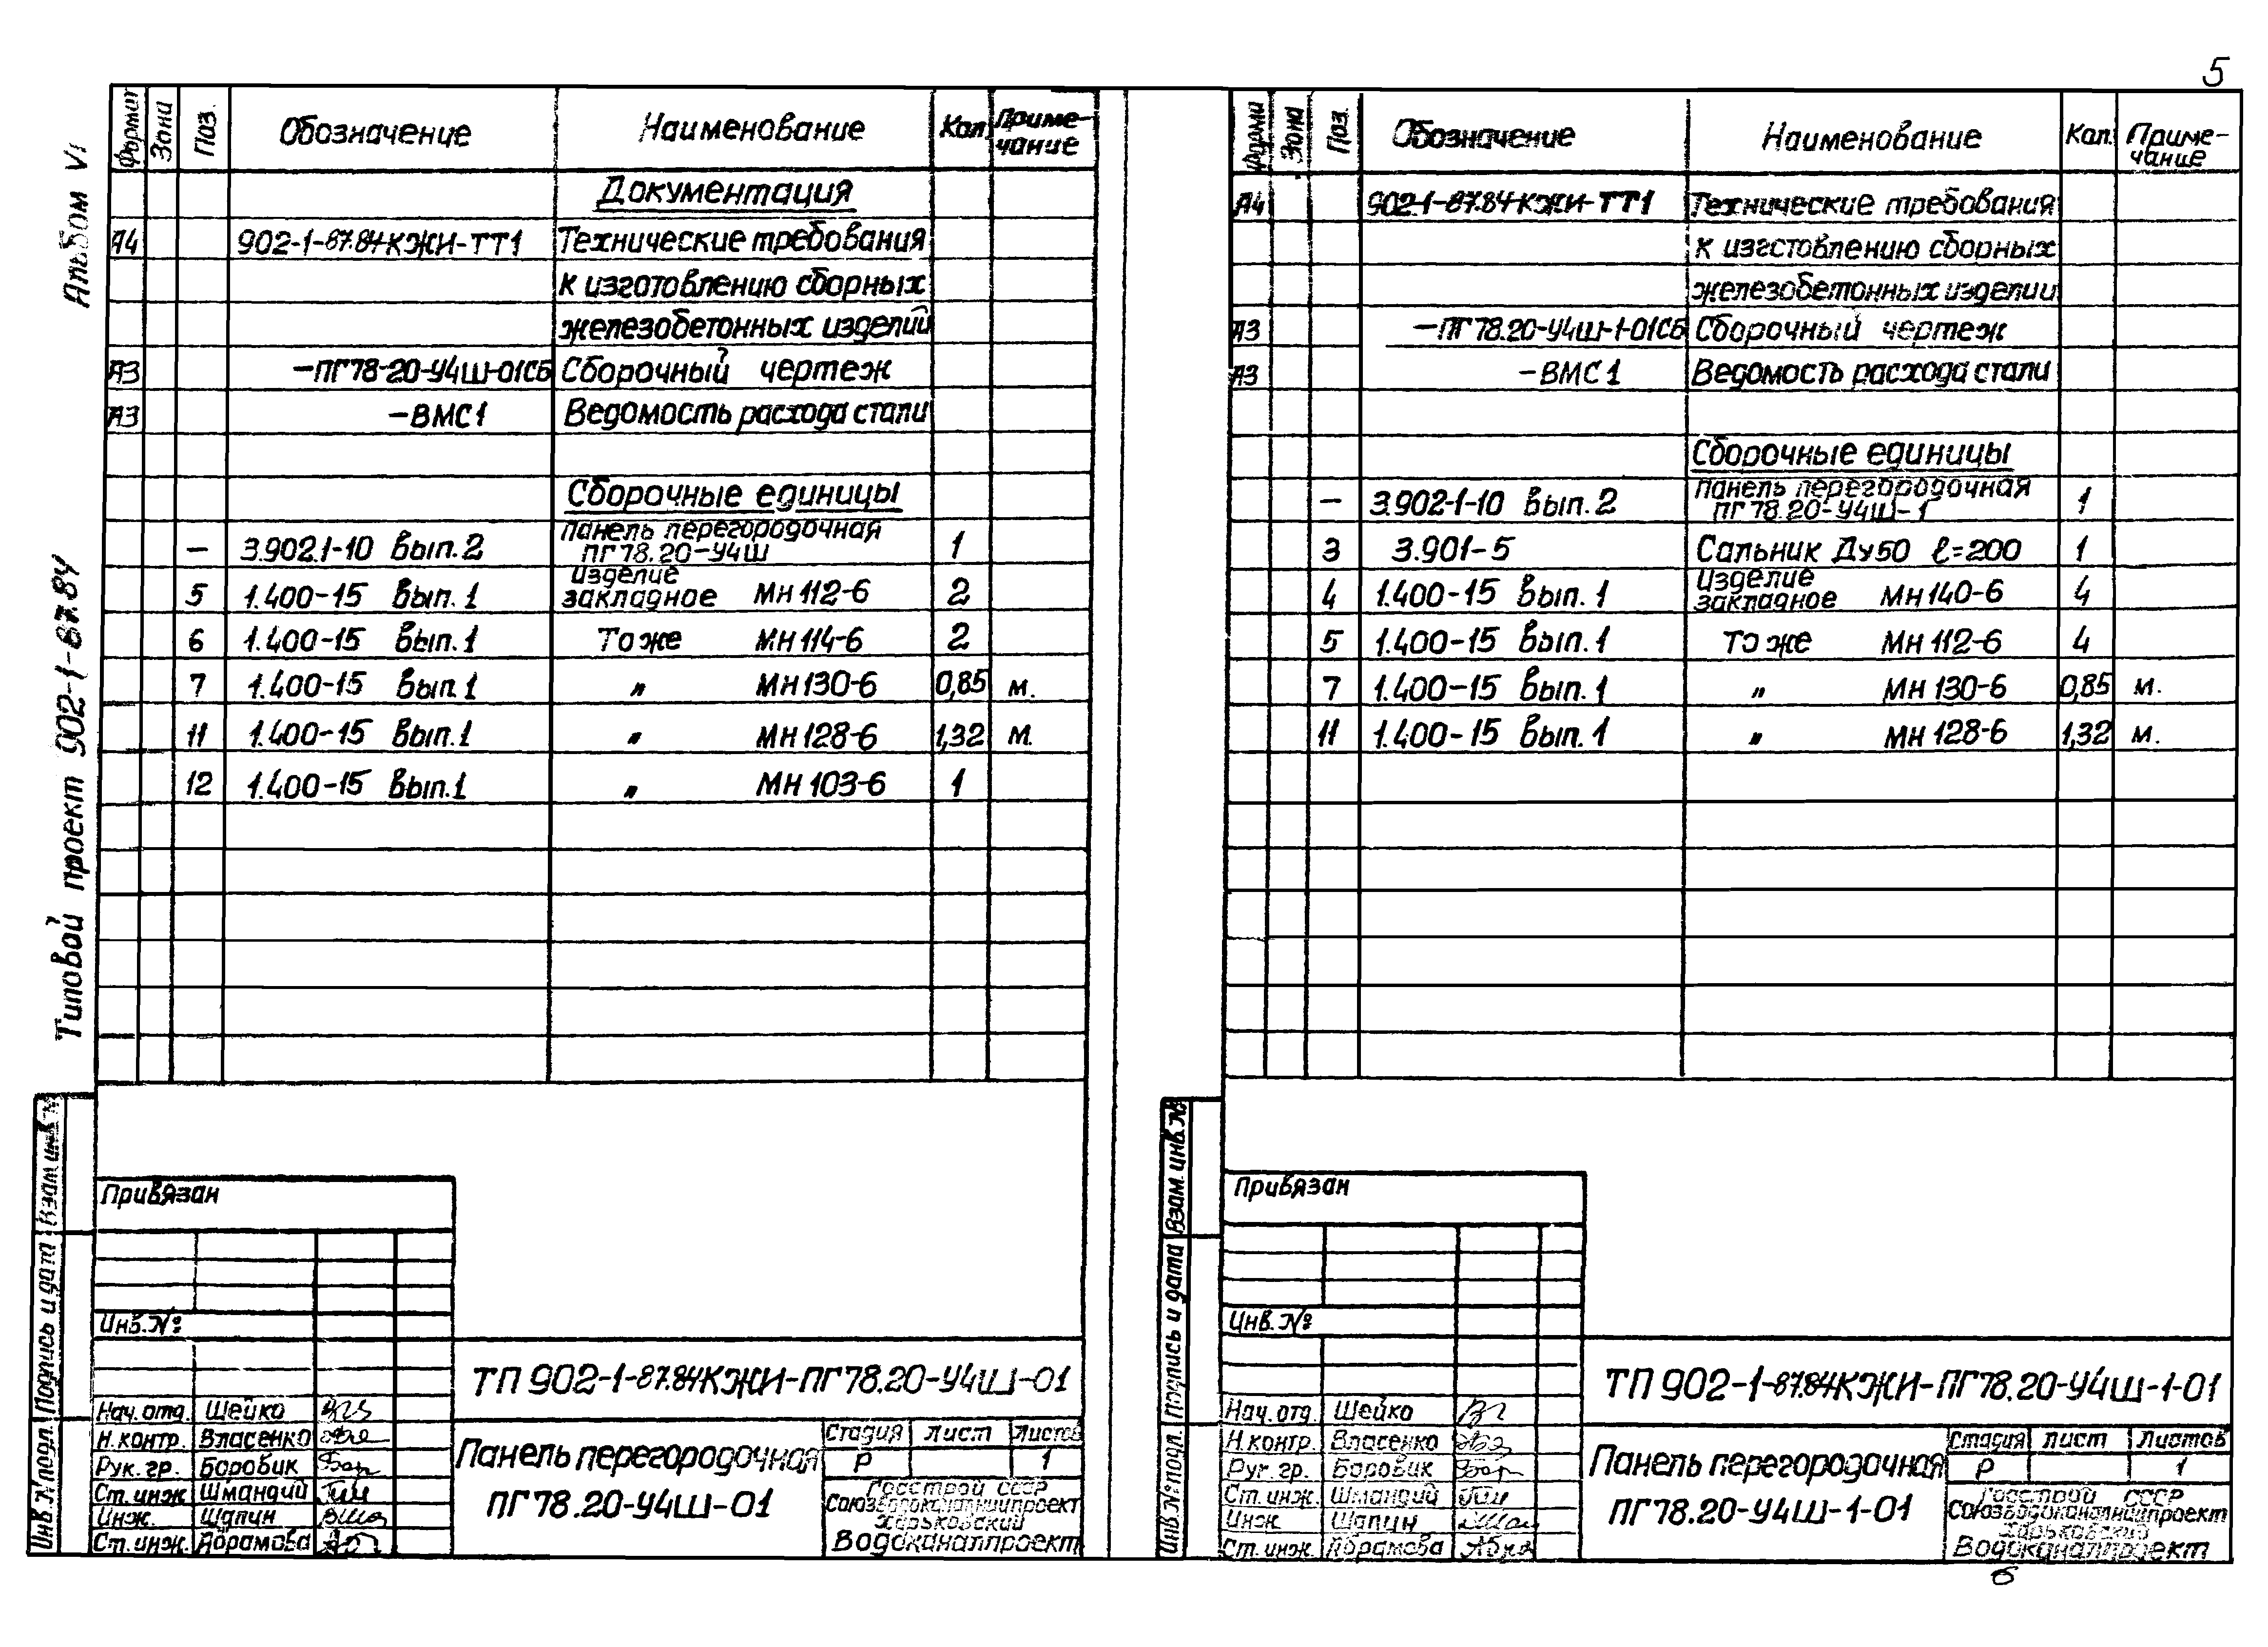 5
Альбом VI
Типовой проект 902-1-87.84
Формат Зона Поз. Обозначение Наименование Кол. Приме-
чание
Документация
А4 902-1-87.84КЖИ-ТТ1 Технические требования
к изготовлению сборных
железобетонных изделий
А3 -ПГ78-20-У4Ш-01СБ Сборочный чертеж
А3 -ВМС1 Ведомость расхода стали
Сборочные единицы
— 3.902.1-10 Вып.2 Панель перегородочная
ПГ78.20-У4Ш 1
5 1.400-15 Вып.1 Изделие
закладное Мн112-6 2
6 1.400-15 Вып.1 То же Мн114-6 2
7 1.400-15 Вып.1 " Мн130-6 0,85 м.
11 1.400-15 Вып.1 " Мн128-6 1,32 м.
12 1.400-15 Вып.1 " Мн103-6 1
Взам. инв. №
Подпись и дата
Инв. № подл.
Привязан
Инв. №
Нач. отд. Шейко
Н.контр. Власенко
Рук. гр. Боровик
Ст. инж. Шмандий
Инж. Шапин
Ст. инж. Абрамова
ТП 902-1-87.84КЖИ-ПГ78.20-У4Ш-01
Панель перегородочная
ПГ78.20-У4Ш-01
Стадия Лист Листов
Р 1
Госстрой СССР
Союзводоканалниипроект
Харьковский
Водоканалпроект
Форма Зона Поз. Обозначение Наименование Кол. Приме-
чание
А4 902-1-87.84КЖИ-ТТ1 Технические требования
к изготовлению сборных
железобетонных изделии
А3 -ПГ78.20-У4Ш-1-01СБ Сборочный чертеж
А3 -ВМС1 Ведомость расхода стали
Сборочные единицы
— 3.902-1-10 Вып.2 Панель перегородочная
ПГ78.20-У4Ш-1 1
3 3.901-5 Сальник Ду50 ℓ=200 1
4 1.400-15 Вып.1 Изделие
закладное Мн140-6 4
5 1.400-15 Вып.1 То же Мн112-6 4
7 1.400-15 Вып.1 " Мн130-6 0,85 м.
11 1.400-15 Вып.1 " Мн128-6 1,32 м.
Взам. инв. №
Подпись и дата
Инв. № подл.
Привязан
Инв. №
Нач. отд. Шейко
Н.контр. Власенко
Рук. гр. Боровик
Ст. инж. Шмандий
Инж. Шапин
Ст. инж. Абрамова
ТП 902-1-87.84КЖИ-ПГ78.20-У4Ш-1-01
Панель перегородочная
ПГ78.20-У4Ш-1-01
Стадия Лист Листов
Р 1
Госстрой СССР
Союзводоканалниипроект
Харьковский
Водоканалпроект
6